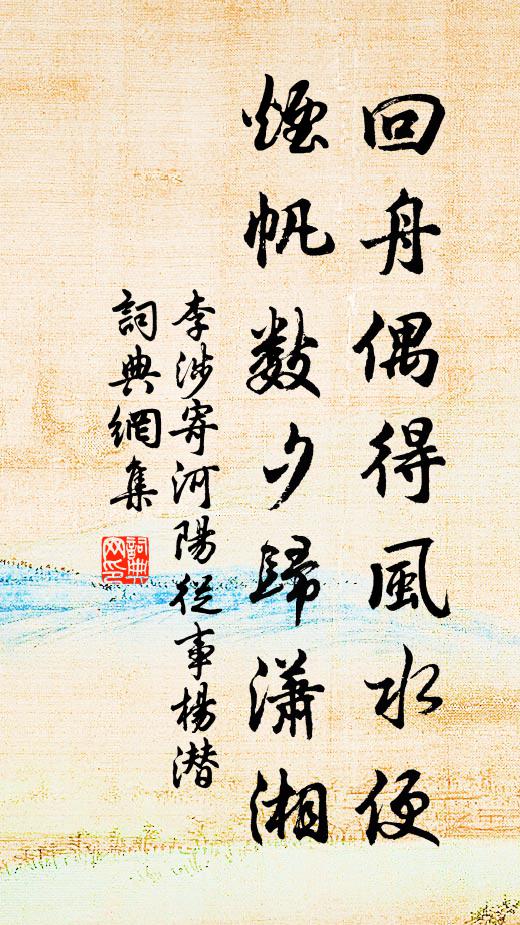 回舟偶得風水便
煙帆数夕歸瀟湘
李涉寄河陽從事楊潜
詞典網集
詞典网印